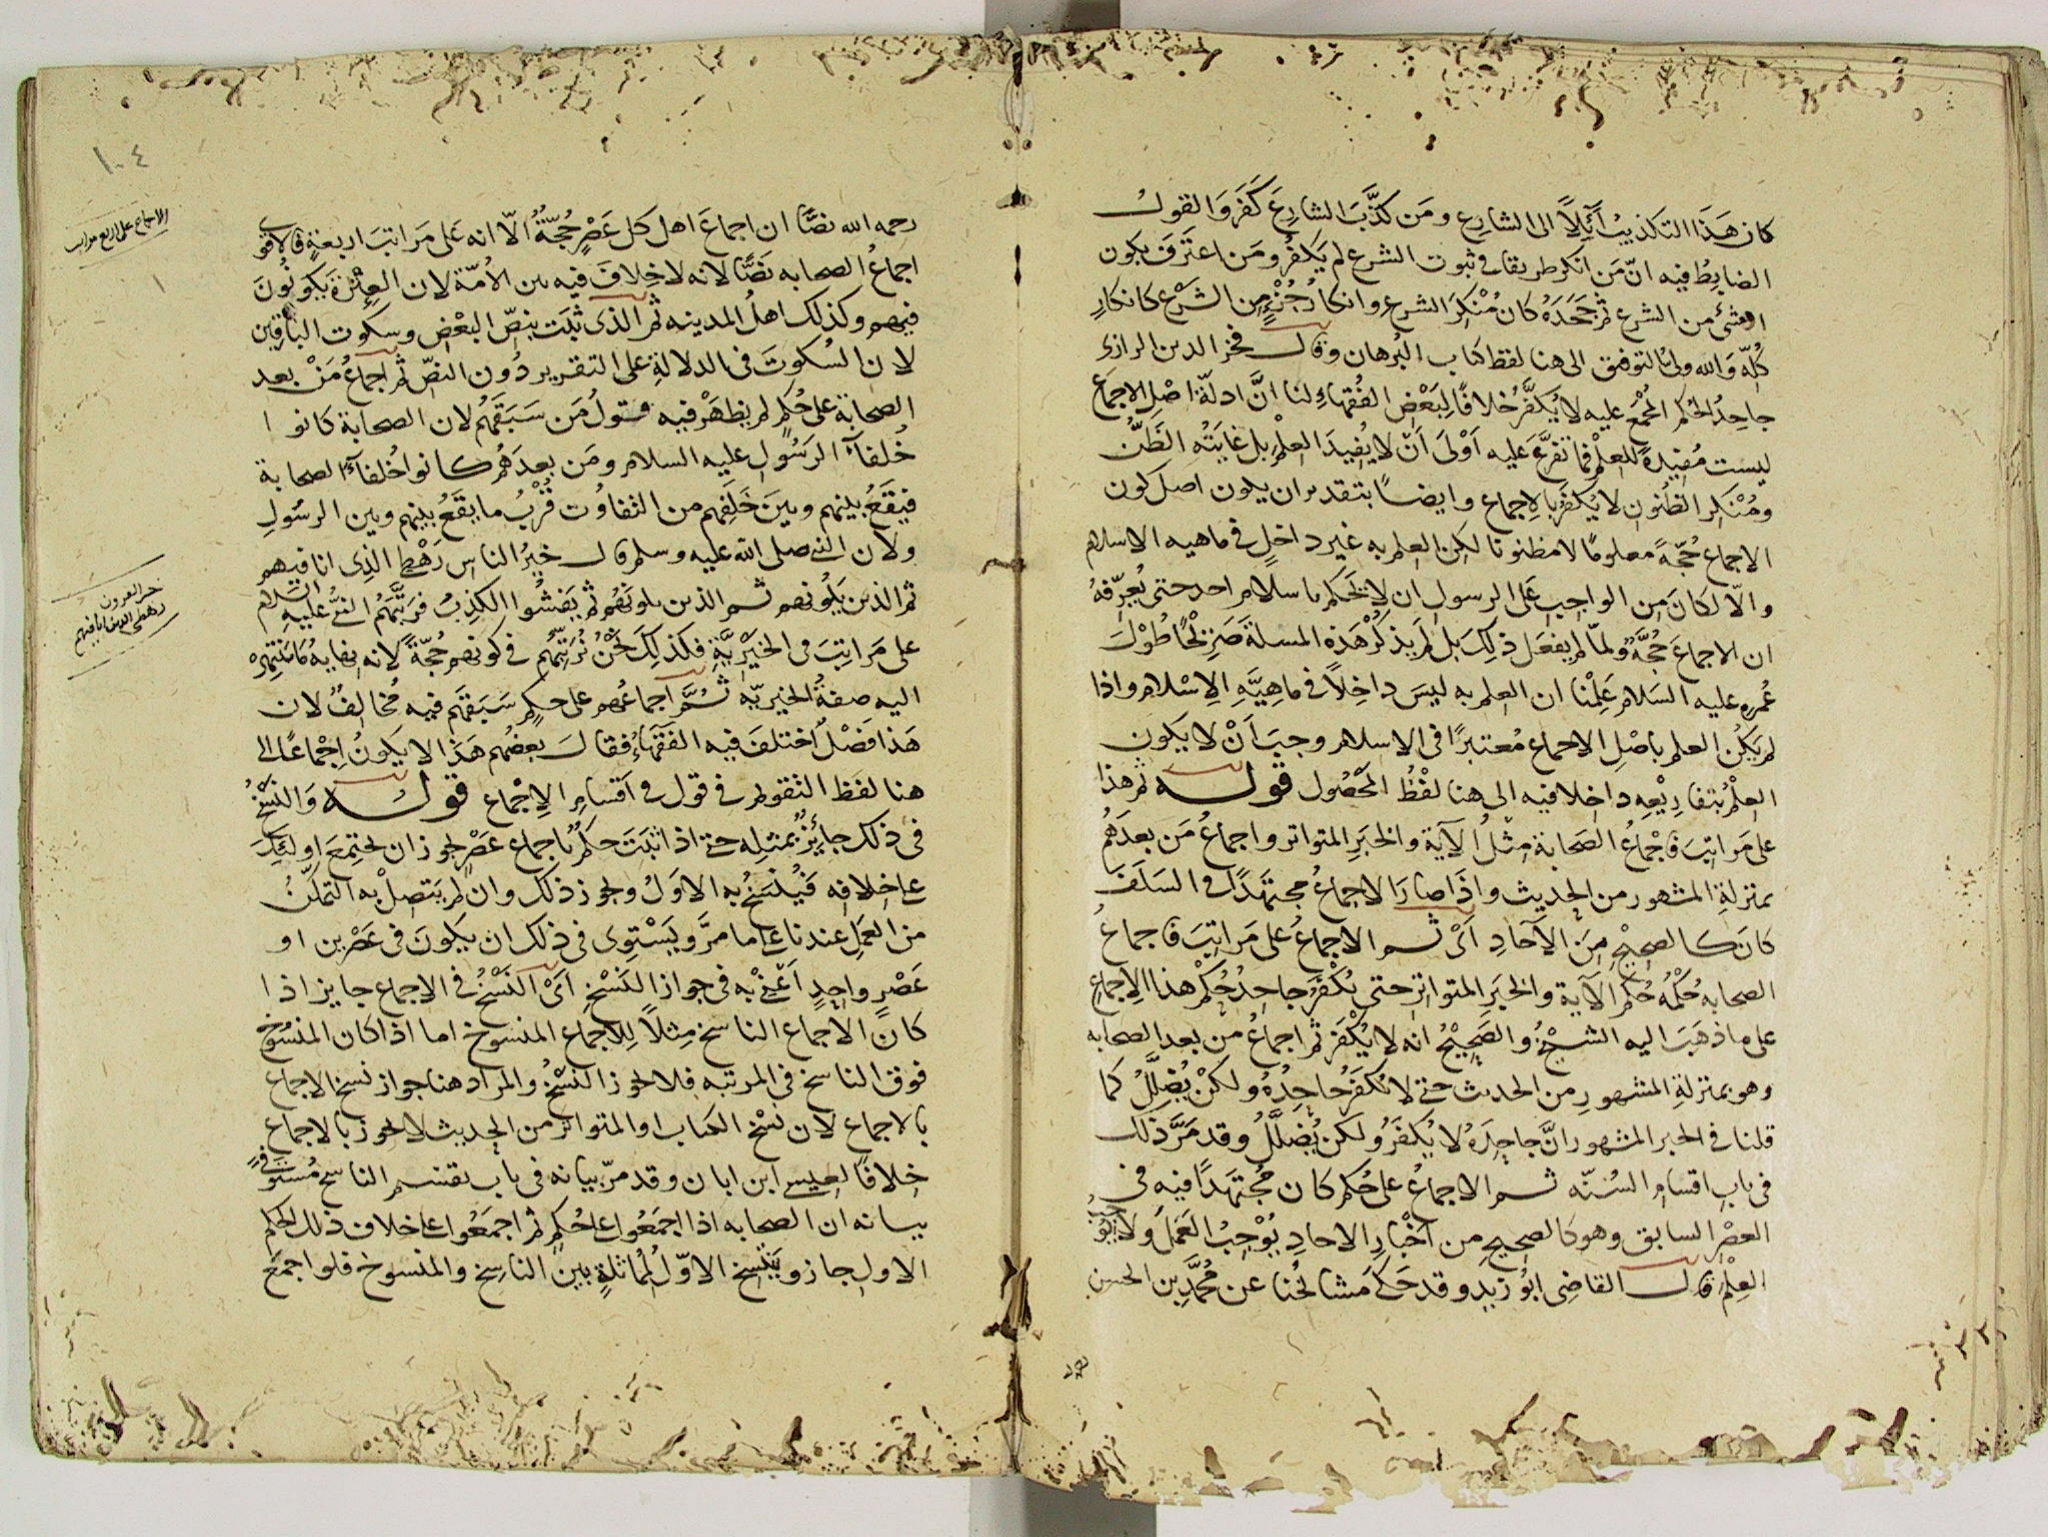 كان هَذَا التكذيبُ آئِلاً الى الشارع ومَن كذَّبَ الشارعَ كَفَرَ والقول
الضابِطُ فيه انّ مَن انكر طريقا فى ثبوت الشرع لم يَكفُر ومَن اعتَرَفَ بكون
الشئ من الشرع ثم جَحَدَهُ كان مُنْكِرَ الشرع وانكارُ جُزْءٍ من الشرع كانكارِ
كُلِّه وَالله ولىُّ التوفيق الى هنا لفظ كتاب البُرهان وقال فخر الدين الرازى
جاحِدُ الحكم المُجْمَع عليه لا يُكَفَّرُ خلافًا لِبَعْضِ الفُقهاءِ لنا انَّ ادلّةَ اصْلِ الاجماع
ليست مُفيدةً للعِلْمِ فما تفرَّعَ عليه اَوْلَى اَنْ لا يُفيدَ العِلْمَ بل غايَتُه الظَنُّ
ومُنْكِر الظنُونِ لا يُكَفَّرُ بالاجماع وايضًا بتقدير ان يكون اصل كون
الاجماع حُجّةً معلومًا لا مظنونا لكن العِلم به غير داخلٍ فى ماهيه الاسلام
والّا لكانَ مِن الواجبِ عَلى الرسولِ ان لا يَحْكم باسلام احد حتى يُعرِّفَهُ
ان الاجماعَ حُجَّةٌ ولمّا لم يفعَل ذلِكَ بل لم يَذكُرْ هَذِهِ المسلة صَرِيْحًا طُوْلَ
عُمرِه عليه السَلام عَلِمْنا ان العلم به ليسَ داخِلاً فى ماهِيَّةِ الاِسْلام واذا
لم يَكُن العلم باصْلِ الاجماع مُعتبرًا فى الاسلام وجبَ اَنْ لا يكون
العِلمُ بتفارِيْعِه داخلا فيه الى هنا لفْظُ المَحْصُول قوله ثم هذا
على مَراتِبَ فاجْماعُ الصَحابة مِثْلُ الآية والخبَرِ المتواتر واجماعُ مَن بعدَهُم
بمنزلةِ المشهور من الحديث واذا صارَ الاجماعُ مجتهَدًا فى السَلَفِ
كانَ كالصحِيْحِ مِنَ الآحادِ اَىْ ثم الاجماعُ على مَراتِبَ فاجماعُ
الصحابه حُكْمُه حُكْمُ الآيةِ والخبَرِ المتواتر حتى يُكفَّرُ جاحِدُ حُكم هذا الاِجماعِ
على ما ذهَبَ اليه الشَيْخُ والصَحِيْحُ انه لا يُكْفَر ثم اجماعُ من بعد الصحابه
وهو بمنزلةِ المشهور من الحديث حتى لا نُكفِّرُ جاحِدُهُ ولكنْ يُضلَّلُ كما
قلنا فى الخبر المشهور انَّ جاحِدَهُ لا يُكفَرُ ولكن يُضلَّلُ وقد مَرَّ ذلك
فى باب اقسام السُنّه ثم الاجماعُ على حُكم كان مُجتهَدًا فيه فى
العصْرِ السابق وهو كالصحيحِ من اَخْبارِ الاحادِ يُوْجِبُ العَمَلَ ولا يُوجبُ
العِلْمَ قال القاضِى ابُو زيدٍ وقد حَكَى مَشايخُنا عن مُحمَّد بن الحسن
١٠٤
الاجماع على اربع مراتب
رحمه الله نصًّا ان اجماعَ اهل كل عَصْرٍ حُجّةٌ الّا انه عَلى مَراتبَ اربعةٍ فالاقوى
اجماعُ الصحابه نصًّا لانه لا خِلافَ فيه بين الاُمّة لان العِتْرةَ يكونُونَ
فيهم وكذلك اهلُ المدينه ثم الذى ثبَتَ بنصّ البعْض وسكوت الباقِين
لان السُكوتَ فى الدلالةِ على التقرير دُون النصّ ثم اجماعُ مَنْ بعد
الصحابة على حُكمٍ لم يظهَرْ فيه قولُ مَن سَبَقهُم لان الصحابة كانوا
خُلفآءَ الرَسُولِ عليه السلام ومَن بعدَهُم كانوا خُلفآءَ الصحابة
فيقَعُ بينهم وبينَ خَلَفِهم من التفاوُت قُرْبُ ما يقَعُ بينهم وبين الرسُولِ
ولان النبى صلى الله عليه وسلم قال خيرُ الناس رَهْطِى الذِى انا فيهم
ثم الذين يَلُونهم ثم الذين يلونهم ثم يَفشُوا الكذِبُ فرَتَّبَهُم النبىُّ عليه السلام
خير القرون
رهطى الذين انا فيهم
على مَراتِبَ فى الخَيْرِيَّةِ فكذلِكَ نَحْنُ نُرَتِّبُهُم فى كونهم حُجّةً لانه نهايه ما تنتهى
اليه صفةُ الخيريّه ثُمَّ اجماعُهم على حكمٍ سَبَقَهُم فيه مُخالِفٌ لان
هَذا فَصْلٌ اختلفَ فيه الفَقَهاءُ فقالَ بعضُهم هَذا لا يكونُ اِجْماعًا الى
هنا لفظ التقويم فى قول فى اَقسامِ الاِجماع قوله وَالنَسْخُ
فى ذلك جائِزٌ بمثلِه حتى اذا ثبَتَ حكمٌ باجماع عَصْرٍ يجوز ان يجتمِعَ اولئِكَ
على خلافِه فيُنْسَخُ به الاَوَلُ ويجوز ذلك وان لم يتصلْ به التمكّنُ
من العَمَلِ عندنا على ما مرَّ ويَسْتوِى فى ذلك ان يكونَ فى عَصْرين او
عَصْرٍ واحِدٍ اَعْنِى به فى جواز النَسْخِ اَىْ النَسْخُ فى الاِجماع جايز اذا
كانَ الاجماع الناسخ مِثلاً لِلاجماع المنسوخ اما اذا كان المنسُوخ
فوق الناسخ فى المرتبه فلا يجوز النَسْخُ والمراد هنا جواز نسخ الاجماع
بالاجماع لان نسْخ الكتاب او المتواتر من الحديث لا يجوز بالاجماع
خلافًا لعيسى ابن ابان وقد مرّ بيانه فى باب تقسيم الناسخ مُستوفًى
بيانه ان الصحابه اذا اجمَعُوا على حُكمٍ ثم اجمَعُوا على خلاف ذلك الحكم
الاول جاز وينْسَخ الاوّلُ لمُماثلةٍ بين الناسِخ والمنسوخ فلو اجمَعَ